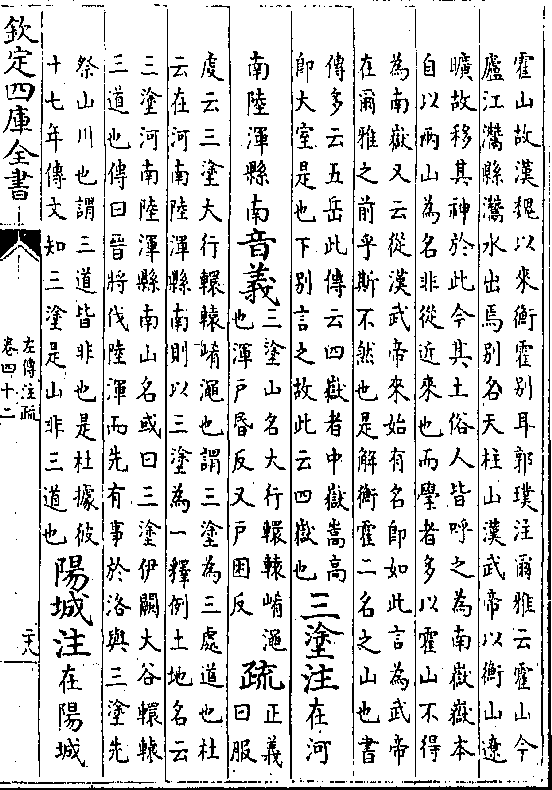 霍山故漢魏以來衡霍別耳郭璞注爾雅云霍山今
廬江灊縣灊水出焉別名天柱山漢武帝以衡山遼
曠故移其神於此今其土俗人皆呼之為南嶽嶽本
自以兩山為名非從近來也而學者多以霍山不得
為南嶽又云從漢武帝來始有名即如此言為武帝
在爾雅之前乎斯不然也是解衡霍二名之山也書
傳多云五岳此傳云四嶽者中嶽嵩高
即大室是也下別言之故此云四嶽也
三塗注在河
南陸渾縣南音義
三塗山名大行轘轅崤澠
也渾戶昏反又戶困反
疏
正義
曰服
虔云三塗大行轘轅崤澠也謂三塗為三處道也杜
云在河南陸渾縣南則以三塗為一釋例土地名云
三塗河南陸渾縣南山名或曰三塗伊闕大谷轘轅
三道也傳曰晉將伐陸渾而先有事於洛與三塗先
祭山川也謂三道皆非也是杜據彼
十七年傳文知三塗是山非三道也
陽城注在陽城
欽定四庫全書
左傳注疏
卷四十二
二十八